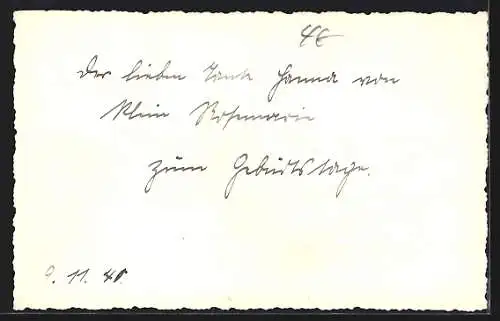 4€
Der lieben Tante Hanna von
Klein Rosemarie
zum Geburtstage.
11. 41.